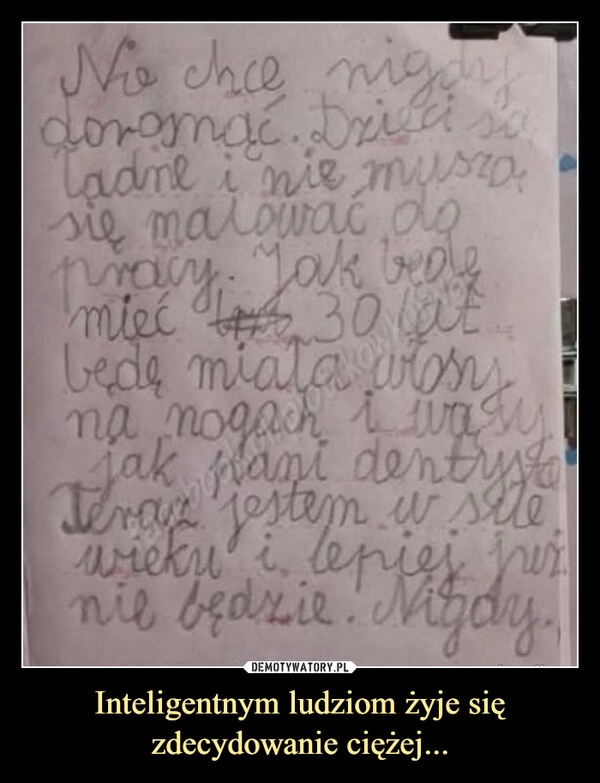 Nie chcę nigdy
dorosnąć. Dzieci są
ładne i nie muszą
się malować do
pracy. Jak będę
mieć 30 lat
będę miała włosy
na nogach i wąsy
jak pani dentysta
Teraz jestem w sile
wieku i lepiej już
nie będzie. Nigdy.
DEMOTYWATORY.PL
Inteligentnym ludziom żyje się
zdecydowanie ciężej...